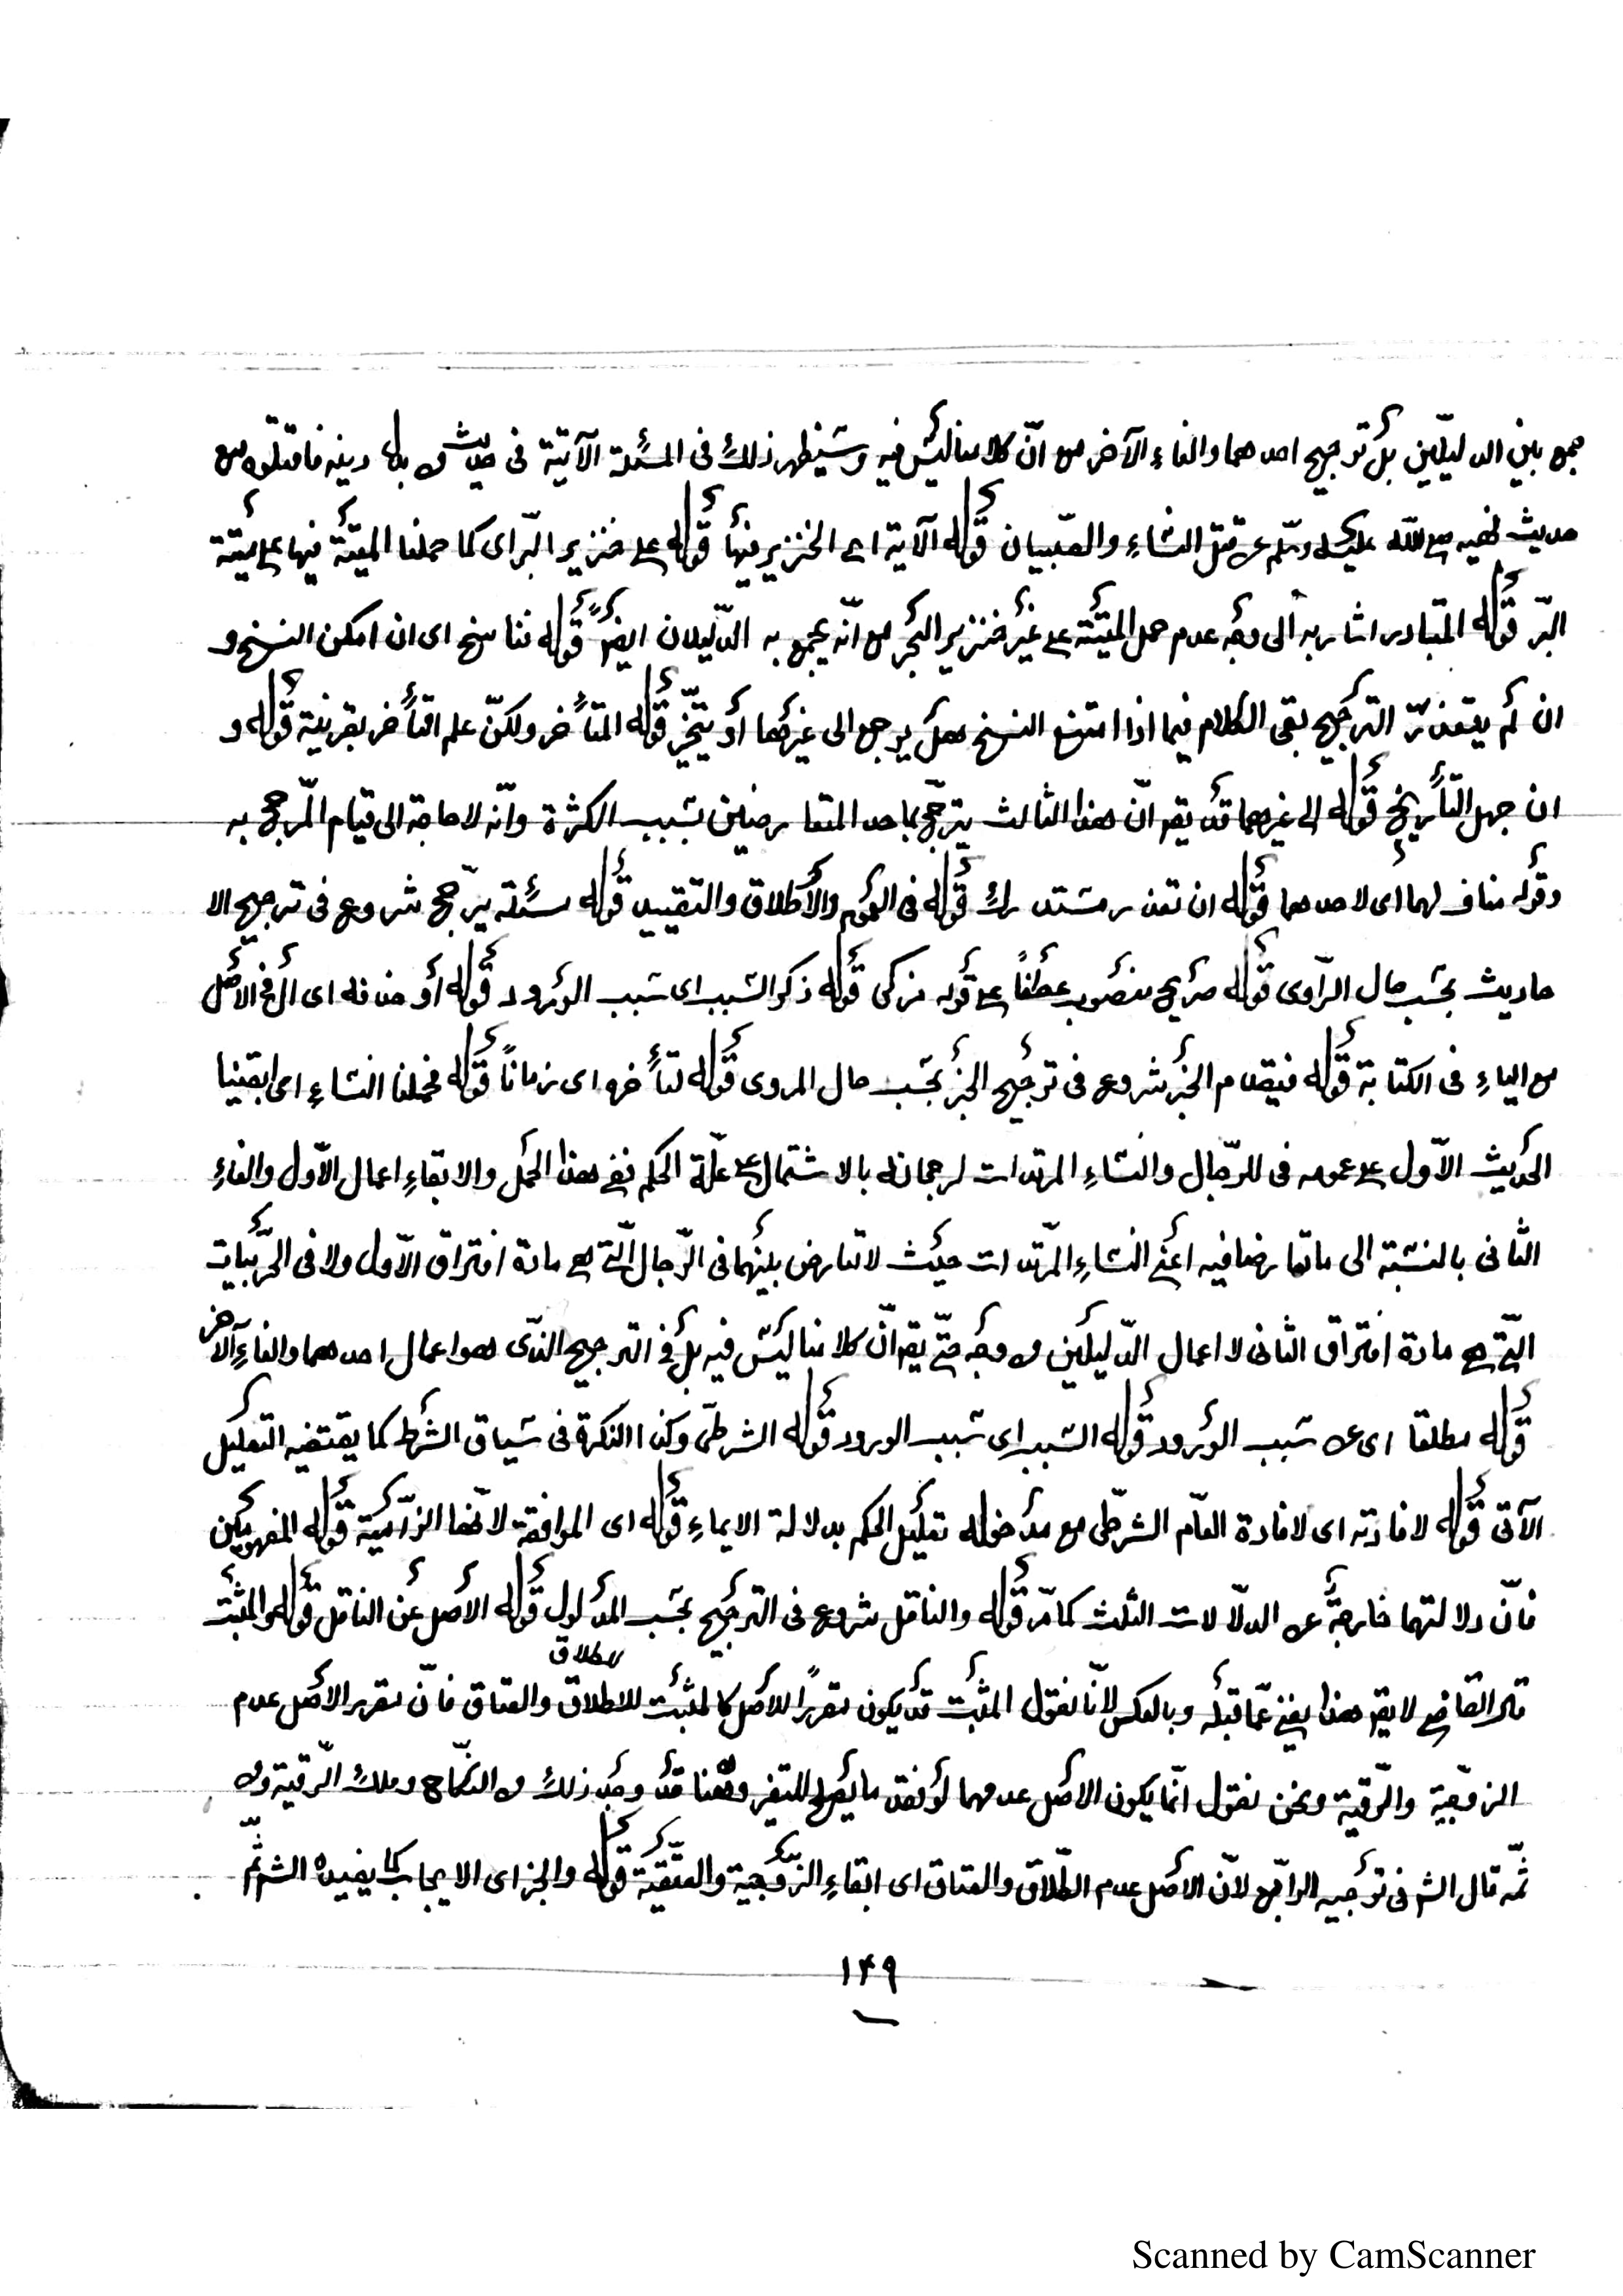 جمع بين الدليلين بل ترجيح احدهما والغاء الآخر مع انّ كلامنا ليس فيه وسيظهر ذلك فى المسئلة الآتية فى حديث من بدل دينه فاقتلوه مع
حديث نهيه صلى الله عليه وسلم عن قتل النساء والصّبيان قوله الآية اى الخنزير فيها قوله على خنزير البّر اى كما حملنا الميتة فيها على ميتة
البّر قوله المتبادر اشار به الى وجه عدم حمل الميتة على غير خنزير البحر مع انّه يجمع به الدّليلان ايضًا قوله فناسخ اى ان امكن النسخ و
ان لم يتعذّر الترجيح بقى الكلام فيما اذا امتنع النسخ هل يرجع الى غيرهما أو يتخيّر قوله المتأخر ولكنّ علم المتأخر بقرينة قوله و
ان جهل التأريخ قوله الى غيرهما قد يقر انّ هذا الثالث يترجّح باحد المتعارضين بسبب الكثرة وانّه لا حاجة الى قيام المّرجح به
وقوله مناف لهما أى لاحدهما قوله ان تعذر مستدرك قوله فى العموم والأطلاق والتقييد قوله مسئلة يرّجح شروع فى ترجيح الا
حاديث بحسب حال الرّاوى قوله صريح منصوب عطفًا على قوله مزكى قوله ذكر السبب اى سبب الورود قوله أو حذفه اى ال فى الأصل
مع الياء فى الكتابة قوله فيقدم الخبر شروع فى ترجيح الخبر بحسب حال المروى قوله لتأخره اى زمانًا قوله فحملنا النساء اى ابقينا
الحديث الاّول على عمومه فى للرّجال والنساء المرتدات لرجحانه بالاشتمال على علّة الحكم ففى هذا الحمل والابقاء اعمال الاّول والغاء
الثانى بالنسبة الى ما تعارضا فيه اعنى النساء المّرتدات حيث لا تعارض بينهما فى الرّجال الّتى هى مادة افتراق الاّول ولا فى الحّربيات
الّتى هى مادة افتراق الثانى لا اعمال الدّليلين من وجه حتّى يقر انّ كلامنا ليس فيه بل فى الترجيح الذّى هو اعمال احدهما والغاء الآخر
قوله مطلقا اى عن سبب الورود قوله السبب اى سبب الورود قوله الشرطىّ وكذا النكرة فى سياق الشرط كما يقتضيه التعليل
الآتى قوله لافادته اى لافادة العاّم الشرطّى مع مدخوله تعليل الحكم بدلالة الايماء قوله اى الموافقة لانّها الزاميّة قوله المفهومين
فانّ دلالتهما خارجة عن الدلّالات الثلث كما مّر قوله والناقل شروع فى الترجيح بحسب المدلول قوله الأصل عن الناقل قوله والمثبت
قال القاضى لا يقر هذا يغنى عمّا قبله وبالعكس لانّا نقول المثبت قد يكون مقررًا للاصل كالمثبت للاطلاق والعتاق فانّ مقرر الاصل عدم
للطلاق
الزوجيّة والّرقية ونحن نقول انّما يكون الاصل عدمهما لو فقد ما يصلح للتغير وههنا قد وجد ذلك من النكّاح وملك الّرقية ومن
ثمّه قال الشر فى توجيه الراجح لانّ الاصل عدم الطّلاق والعتاق اى ابقاء الزّوجية والعتّقية قوله والخبر اى الايجاب كما يفيده الشر ثمّ
١٤٩
Scanned by CamScanner